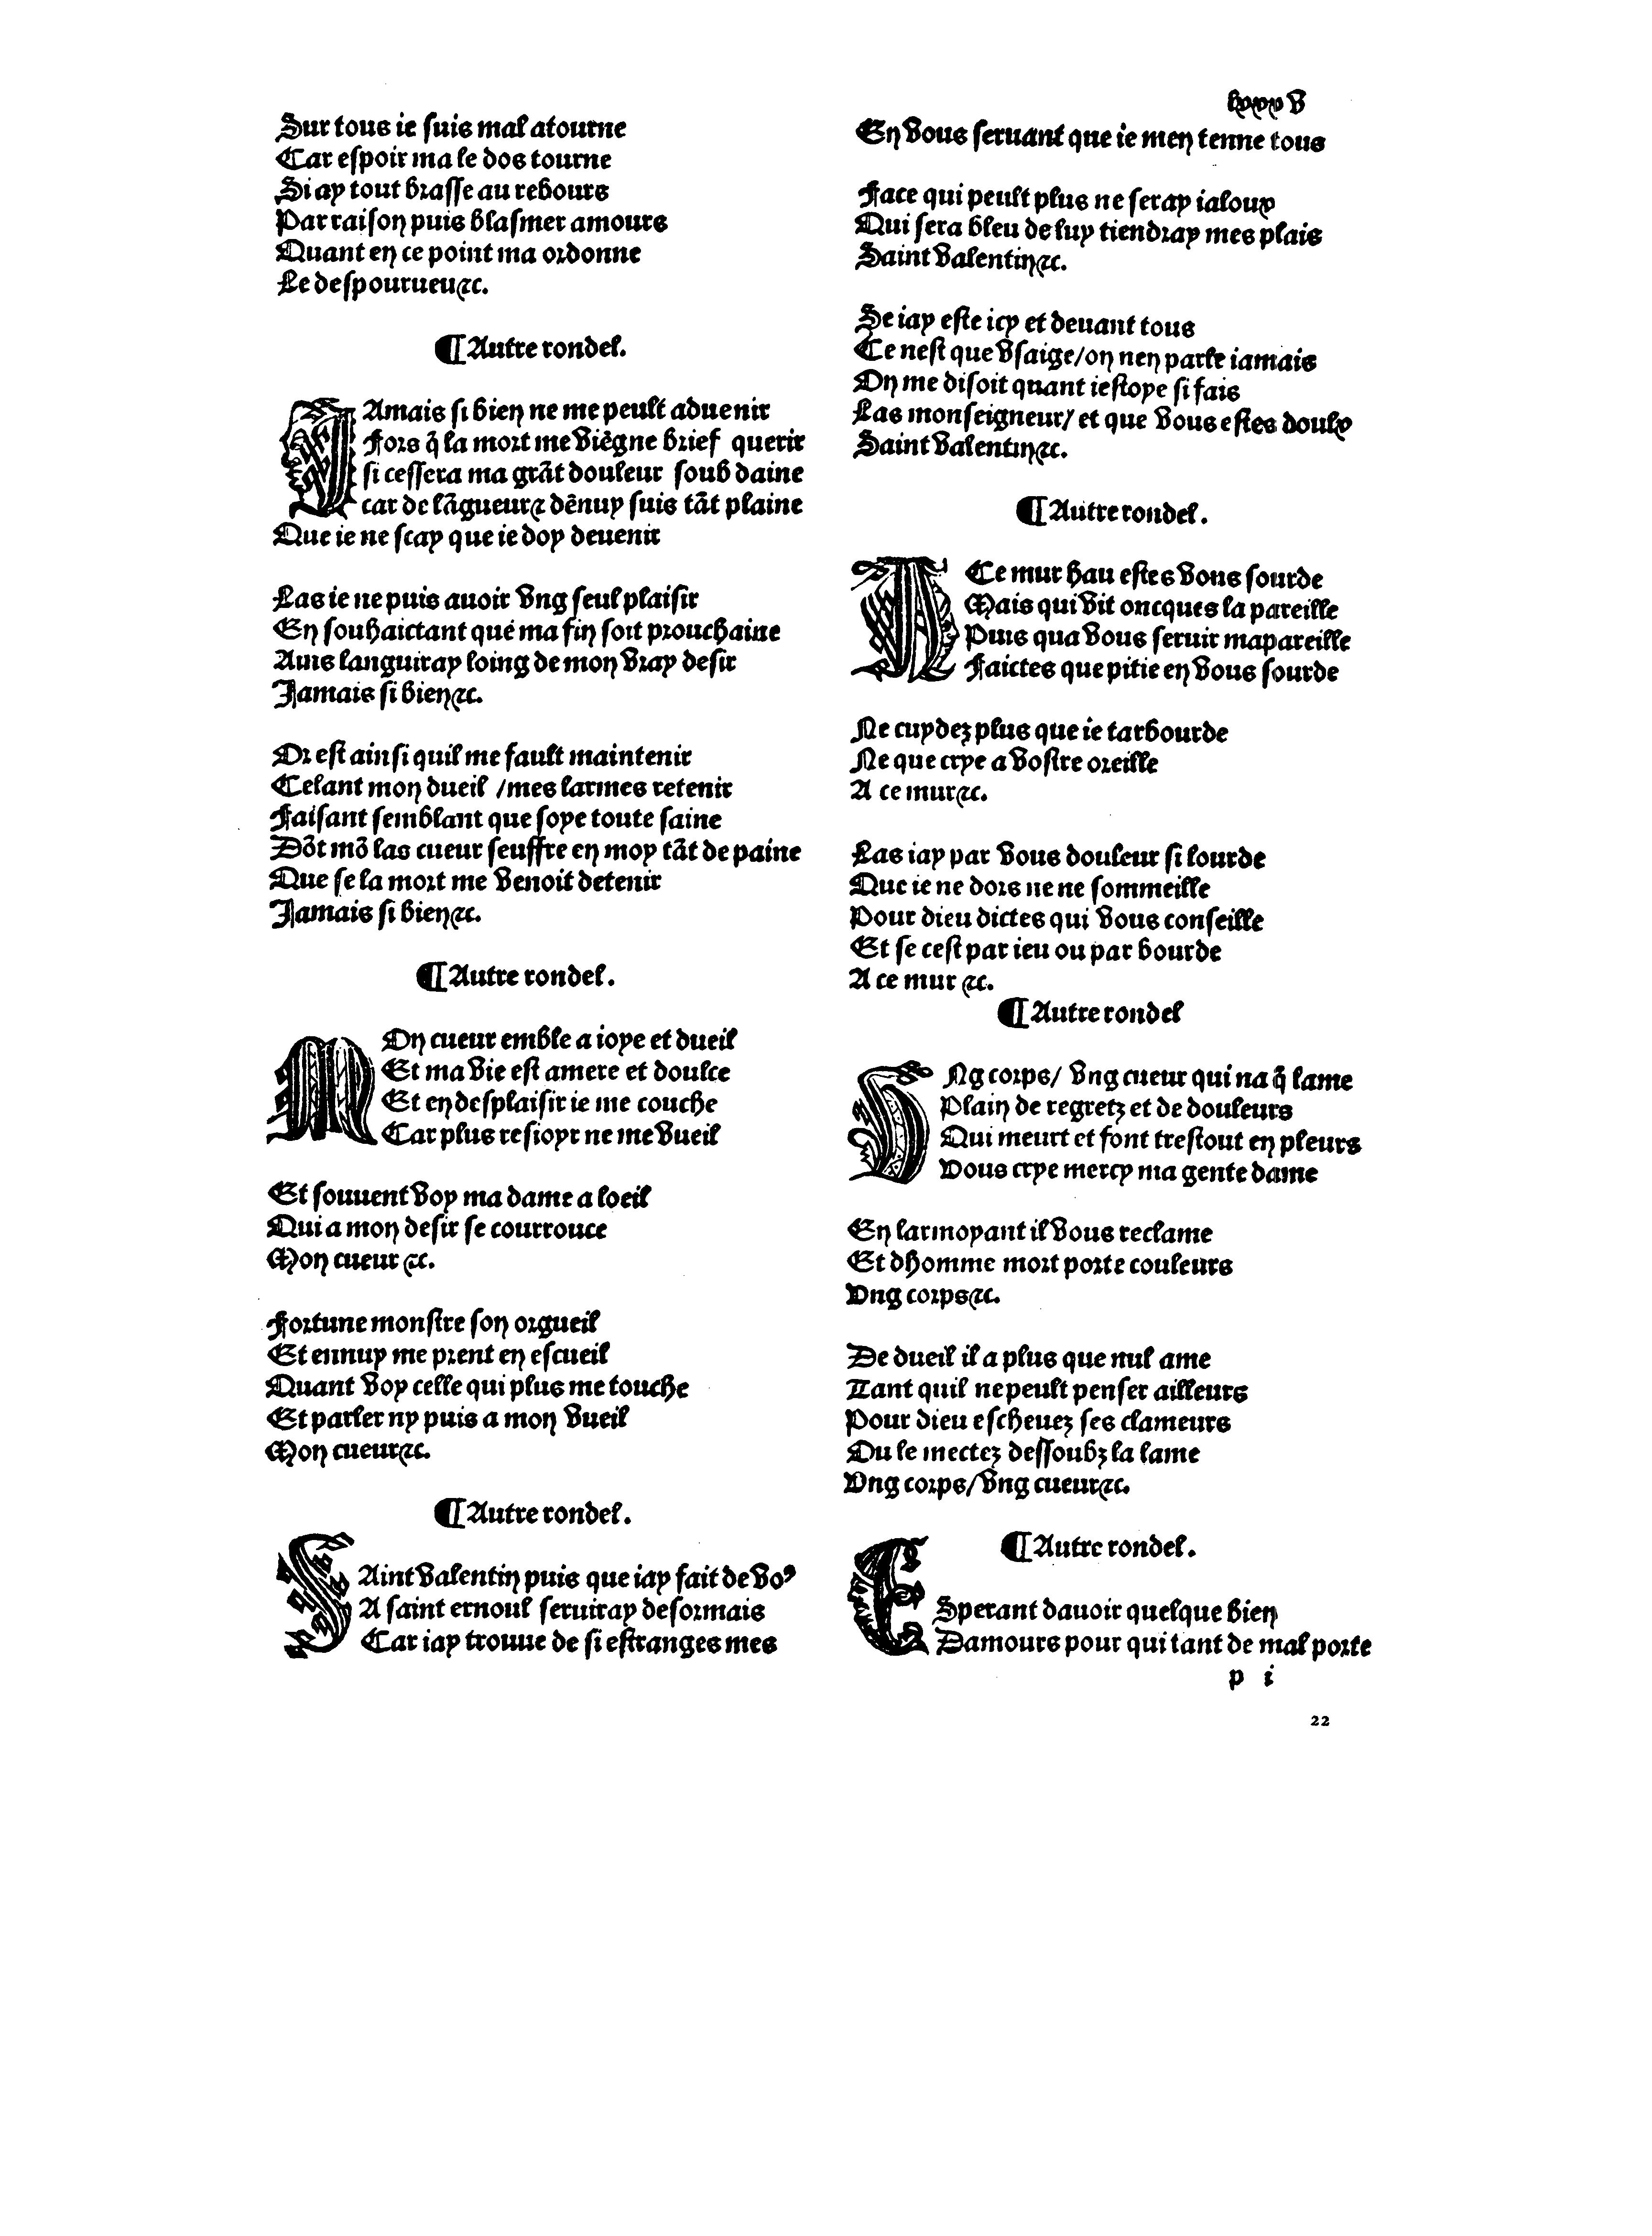 lxxxv
Sur tous ie suis mal atourne
Car espoir ma le dos tourne
Si ay tout brasse au rebours
Par raison puis blasmer amours
Quant en ce point ma ordonne
Le despourueu⁊c.
¶Autre rondel.
IAmais si bien ne me peult aduenir
Fors q̃ la mort me viẽgne brief querir
si cessera ma grãt douleur soubdaine
car de lãgueur⁊ dẽnuy suis tãt plaine
Que ie ne scay que ie doy deuenir
Las ie ne puis auoir vng seul plaisir
En souhaictant que ma fin soit prouchaine
Ains languiray loing de mon vray desir
Jamais si bien⁊c.
Or est ainsi quil me fault maintenir
Celant mon dueil /mes larmes retenir
Faisant semblant que soye toute saine
Dõt mõ las cueur seuffre en moy tãt de paine
Que se la mort me venoit detenir
Jamais si bien⁊c.
¶Autre rondel.
MOn cueur emble a ioye et dueil
Et ma vie est amere et doulce
Et en desplaisir ie me couche
Car plus resioyr ne me vueil
Et souuent voy ma dame a loeil
Qui a mon desir se courrouce
Mon cueur ⁊c.
Fortune monstre son orgueil
Et ennuy me prent en escueil
Quant voy celle qui plus me touche
Et parler ny puis a mon vueil
Mon cueur⁊c.
¶Autre rondel.
SAint valentin puis que iay fait de voꝰ
A saint ernoul seruiray desormais
Car iay trouue de si estranges mes
En vous seruant que ie men tenne tous
Face qui peult plus ne seray ialoux
Qui sera bleu de luy tiendray mes plais
Saint valentin⁊c.
Se iay este icy et deuant tous
Ce nest que vsaige/on nen parle iamais
On me disoit quant iestoye si fais
Las monseigneur/ et que vous estes doulx
Saint valentin⁊c.
¶Autre rondel.
A Ce mur hau estes vous sourde
Mais qui vit oncques la pareille
Puis qua vous seruir mapareille
Faictes que pitie en vous sourde
Ne cuydez plus que ie tarbourde
Ne que crye a vostre oreille
A ce mur⁊c.
Las iay par vous douleur si lourde
Que ie ne dors ne ne sommeille
Pour dieu dictes qui vous conseille
Et se cest par ieu ou par bourde
A ce mur ⁊c.
¶Autre rondel
VNg corps/ vng cueur qui na q̃ lame
Plain de regretz et de douleurs
Qui meurt et font trestout en pleurs
Vous crye mercy ma gente dame
En larmoyant il vous reclame
Et dhomme mort porte couleurs
Vng corps⁊c.
De dueil il a plus que nul ame
Tant quil ne peult penser ailleurs
Pour dieu escheuez ses clameurs
Ou le mectez dessoubz la lame
Vng corps/vng cueur⁊c.
¶Autre rondel.
ESperant dauoir quelque bien
Damours pour qui tant de mal porte
p i
22